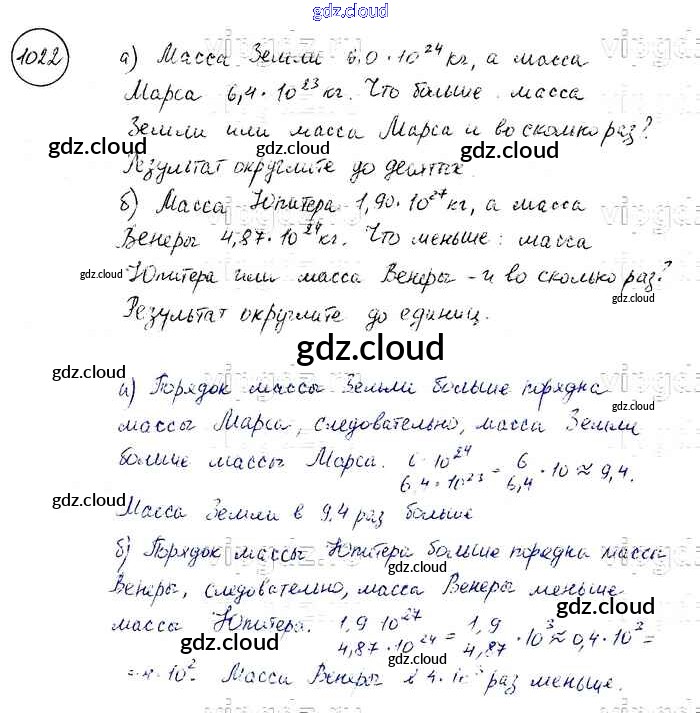 gdz.cloud
1022
а) Масса Земли 6,0 · 10²⁴ кг, а масса
Марса 6,4 · 10²³ кг. Что больше масса
Земли или масса Марса и во сколько раз?
Результат округлите до десятых.
б) Масса Юпитера 1,90 · 10²⁷ кг, а масса
Венеры 4,87 · 10²⁴ кг. Что меньше: масса
Юпитера или масса Венеры – и во сколько раз?
Результат округлите до единиц.
gdz.cloud
а) Порядок массы Земли больше порядка
массы Марса, следовательно, масса Земли
больше массы Марса. 6·10²⁴ / 6,4·10²³ = 6/6,4 · 10 ≈ 9,4.
Масса Земли в 9,4 раз больше
б) Порядок массы Юпитера больше порядка массы
Венеры, следовательно, масса Венеры меньше
масса Юпитера. 1,9·10²⁷ / 4,87·10²⁴ = 1,9/4,87 · 10³ ≈ 0,4·10³ =
10². Масса Венеры в 4·10² раз меньше.